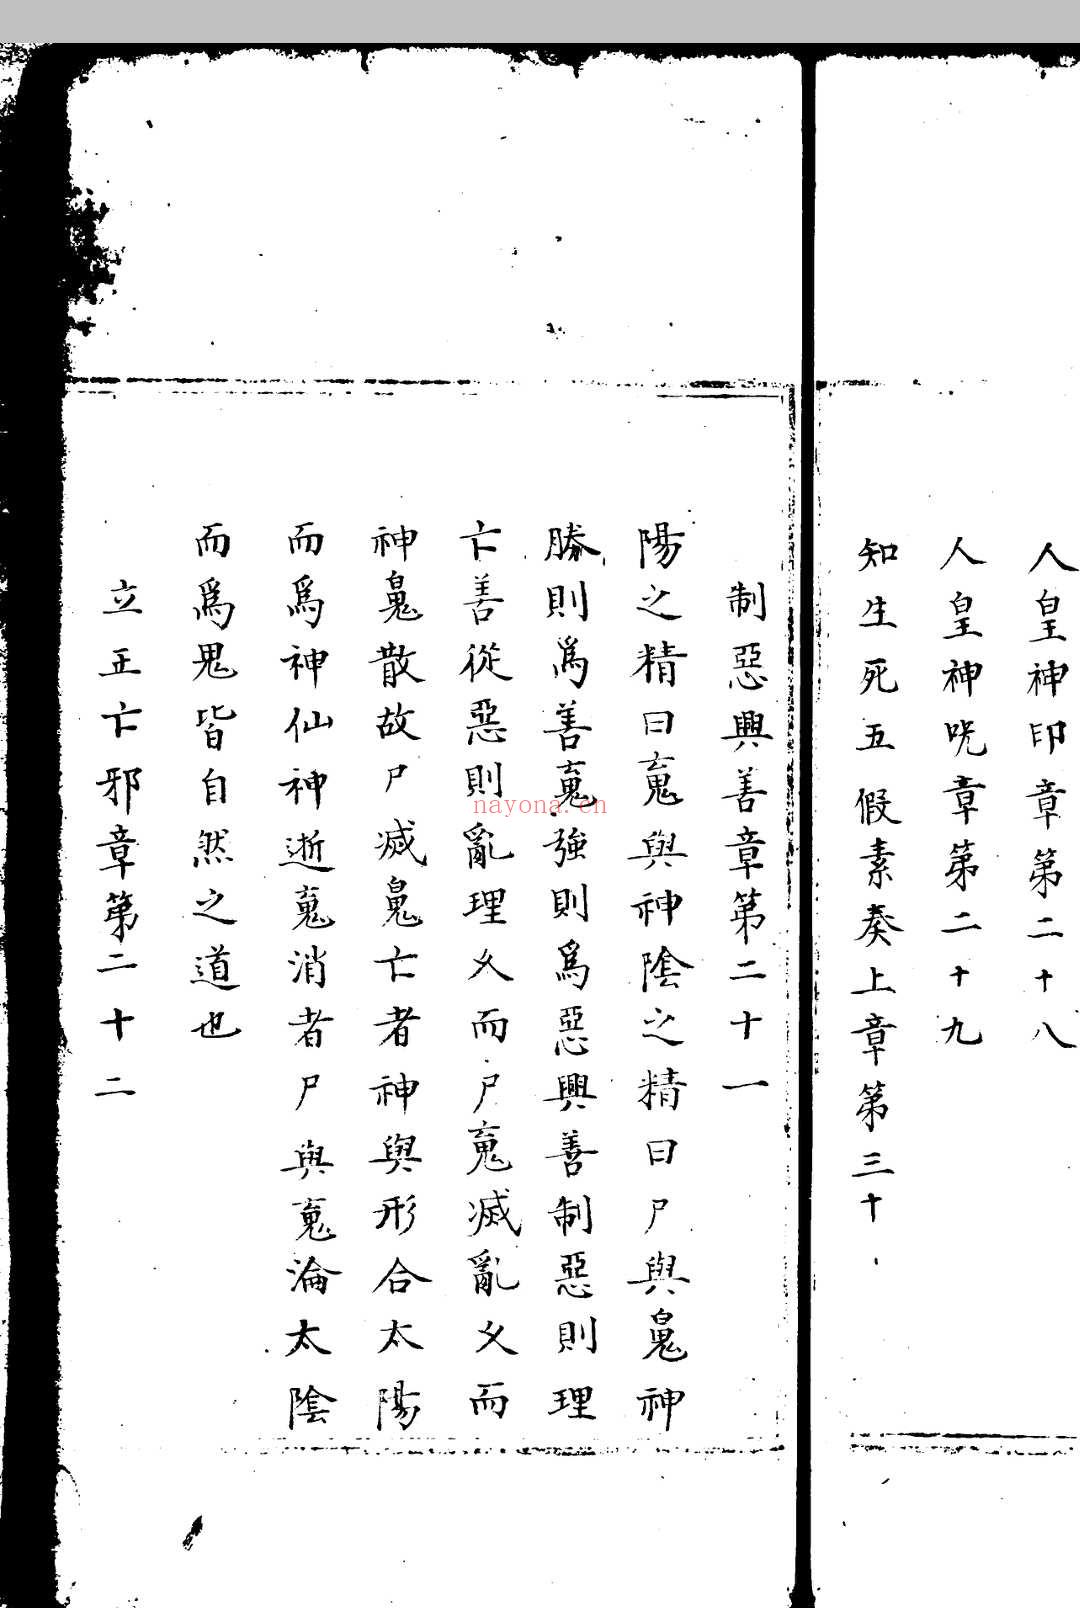 人皇神印章第二十八
人皇神咒章第二十九
知生死五假素奏上章第三十
制惡興善章第二十一
陽之精曰䰟與神陰之精曰尸與鬼神
勝則爲善䰟強則爲惡興善制惡則理
亡善從惡則亂理久而尸䰟滅亂久而
神散故尸滅亡者神與形合太陽
而爲神仙神逝䰟消者尸與䰟淪太陰
而爲鬼皆自然之道也
立正亡邪章第二十二
nayona.cn